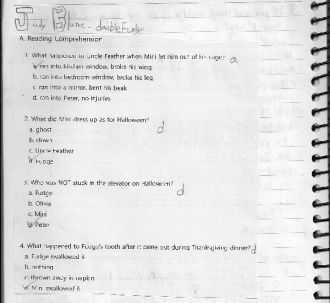 Judy Blume - double Fudge
A. Reading Comprehension
1. What happened to Uncle Feather when Mini let him out of his cage? a
a. ran into kitchen window, broke his wing
b. ran into bedroom window, broke his leg
c. ran into a mirror, bent his beak
d. ran into Peter, no injuries
2. What did Mini dress up as for Halloween? d
a. ghost
b. clown
c. Uncle Feather
d. Fudge
3. Who was NOT stuck in the elevator on Halloween? d
a. Fudge
b. Olivia
c. Mini
d. Peter
4. What happened to Fudge's tooth after it came out during Thanksgiving dinner? d
a. Fudge swallowed it
b. nothing
c. thrown away in napkin
d. Mini swallowed it